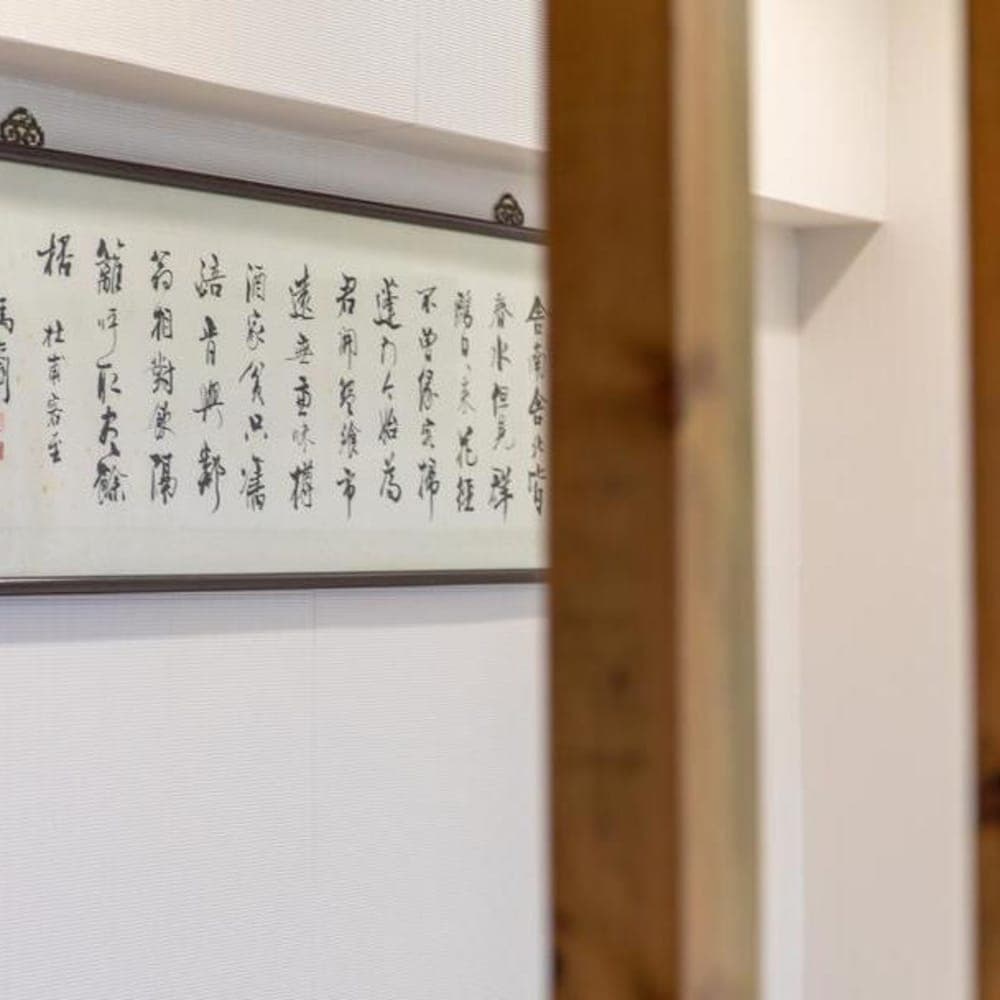 舍南舍北皆
春水但見群
鷗日日來花徑
不曾緣客掃
蓬門今始為
君開盤飧市
遠無兼味樽
酒家貧只舊
醅肯與鄰
翁相對飲隔
籬呼取盡餘
桮 杜甫客至